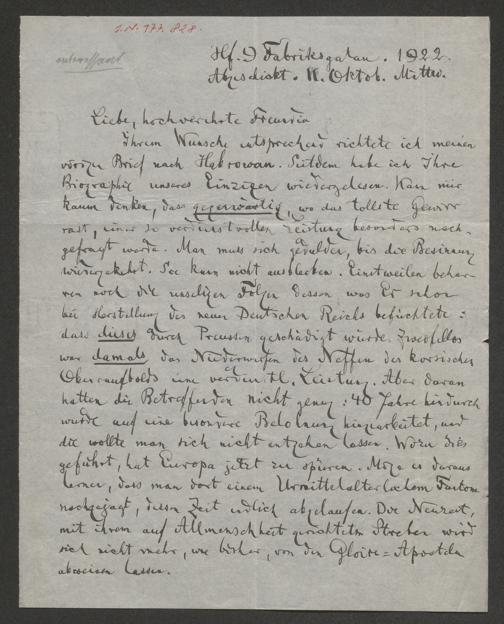 I.N. 177.828.
interessant
Hf. 9 Fabriksgatan. 1922.
Abgeschickt. 11. Oktob. Mittw.
Liebe, hochverehrte Freundin
Ihrem Wunsche entsprechend richtete ich meinen
vorigen Brief nach Habrowan. Seitdem habe ich Ihre
Biographie unseres Einzigen wiedergelesen. Kan mir
kaum denken, dass gegenwärtig, wo das tollste Gewirr
rast, einer so verdienstvollen Leistung besonders nach-
gefragt werde. Man muss sich gedulden, bis die Besinnung
wiedergekehrt. Sie kann nicht ausbleiben. Einstweilen behar-
ren noch die unseligen Folgen dessen, was Er schon
bei Herstellung des neuen Deutschen Reichs befürchtete:
dass dieses durch Preussen geschädigt würde. Zweifellos
war damals das Niederwerfen des Neffen des korsischen
Oberraufbolds eine verdienstl. Leistung. Aber daran
hatten die Betreffenden nicht genug: 40 Jahre hindurch
wurde auf eine besondere Belohnung hingearbeitet, und
die wollte man sich nicht entgehen lassen. Wozu dies
geführt, hat Europa jetzt zu spüren. Möge es daraus
lernen, dass man dort einem Urmittelalterlichem Fantom
nachgejagt, dessen Zeit endlich abgelaufen. Die Neuzeit,
mit ihrem auf Allmenschheit gerichteten Streben wird
sich nicht mehr, wie bisher, von den Gloire=Aposteln
abweisen lassen.